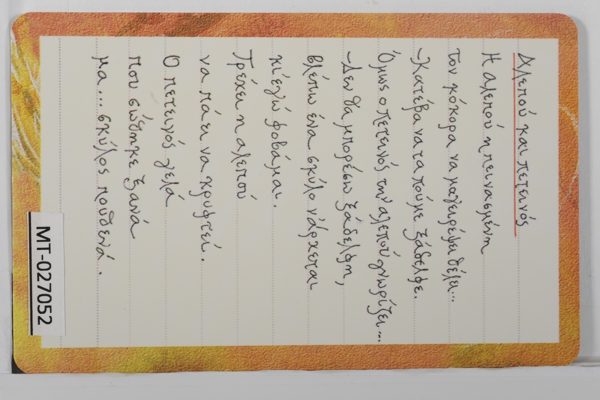 Αλεπού και πετεινός
Η αλεπού η πεινασμένη
τον κόκορα να μαγειρέψει θέλει...
-Κατέβα να τα πούμε ξάδελφε.
Όμως ο πετεινός την αλεπού γνωρίζει...
-Δεν θα μπορέσω ξάδελφη,
βλέπω ένα σκύλο νάρχεται
κι εγώ φοβάμαι.
Τρέχει η αλεπού
να πάει να κρυφτεί.
Ο πετεινός γελά
που σώθηκε ξανά
μα... σκύλος πουθενά.
MT-027052